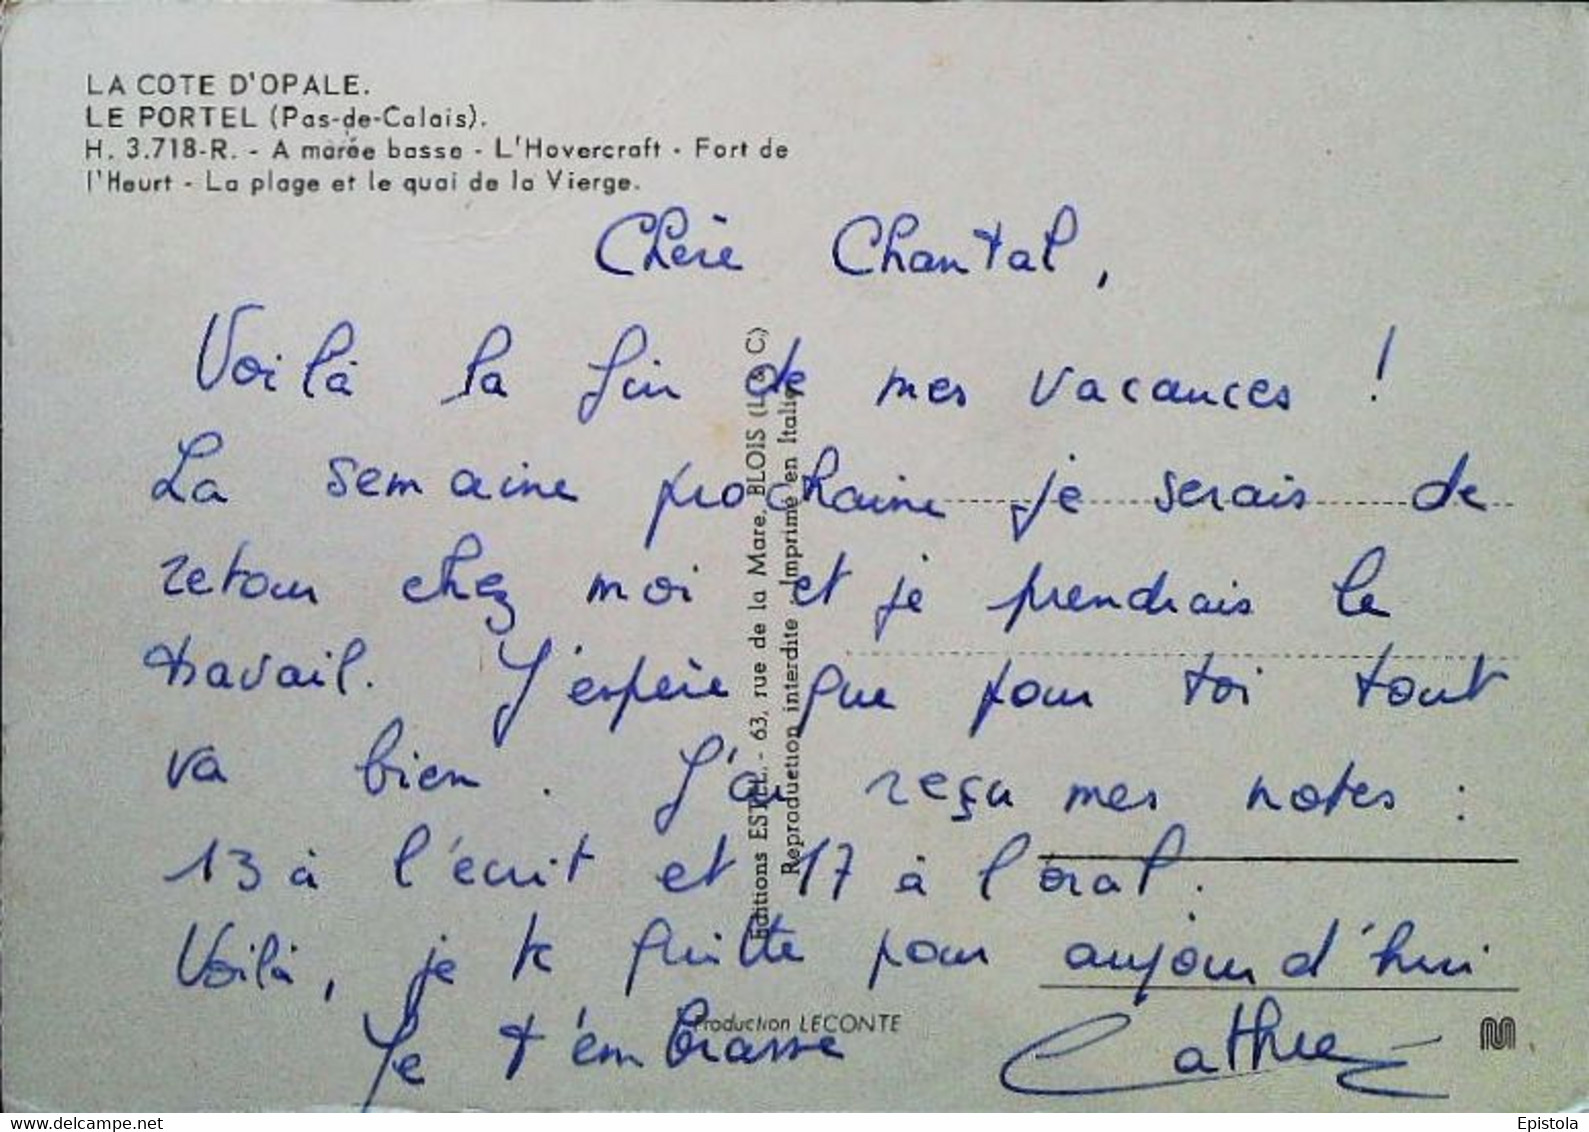 LA COTE D'OPALE.
LE PORTEL (Pas-de-Calais).
H. 3.718-R. - A marée basse - L'Hovercraft - Fort de
l'Heurt - La plage et le quai de la Vierge.
Chère Chantal,
Voilà la fin de mes vacances !
La semaine prochaine je serais de
retour chez moi et je prendrais le
travail. J'espère que pour toi tout
va bien. J'ai reçu mes notes :
13 à l'écrit et 17 à l'oral.
Voilà, je te quitte pour aujourd'hui
Je t'embrasse
Editions ESTEL. - 63, rue de la Mare, BLOIS (L. & C.)
Reproduction interdite - Imprimé en Italie
Production LECONTE
delcampe.net
Epistola